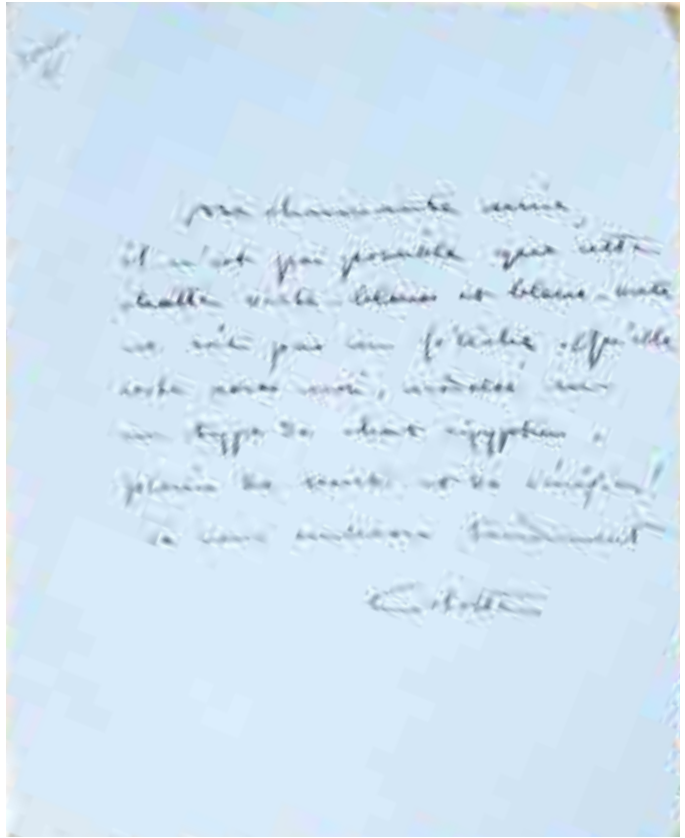 ma charmante amie,
il n'est pas possible que cette
chatte verte-blanc et blanc-verte
ne soit pas un fétiche. Qu'elle
reste parmi
un type de chat égyptien,
pleine de et de
Je vous embrasse tendrement
Colette